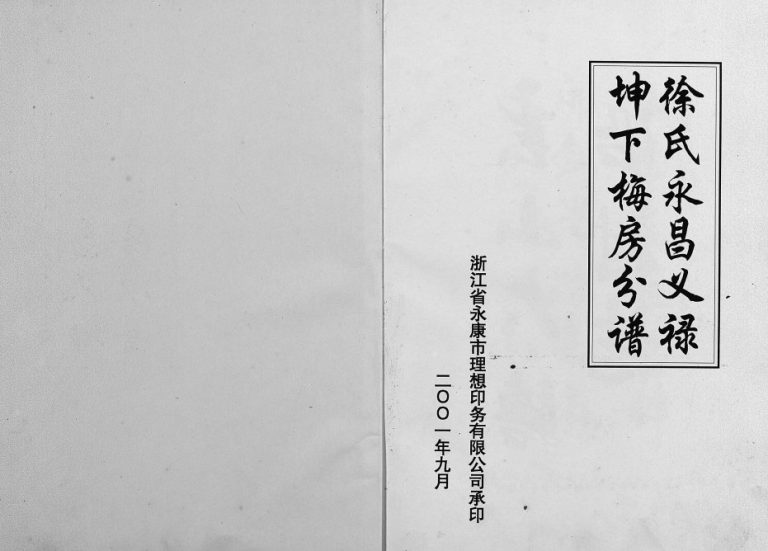 徐氏永昌义禄
坤下梅房分谱
浙江省永康市理想印务有限公司承印
二〇〇一年九月